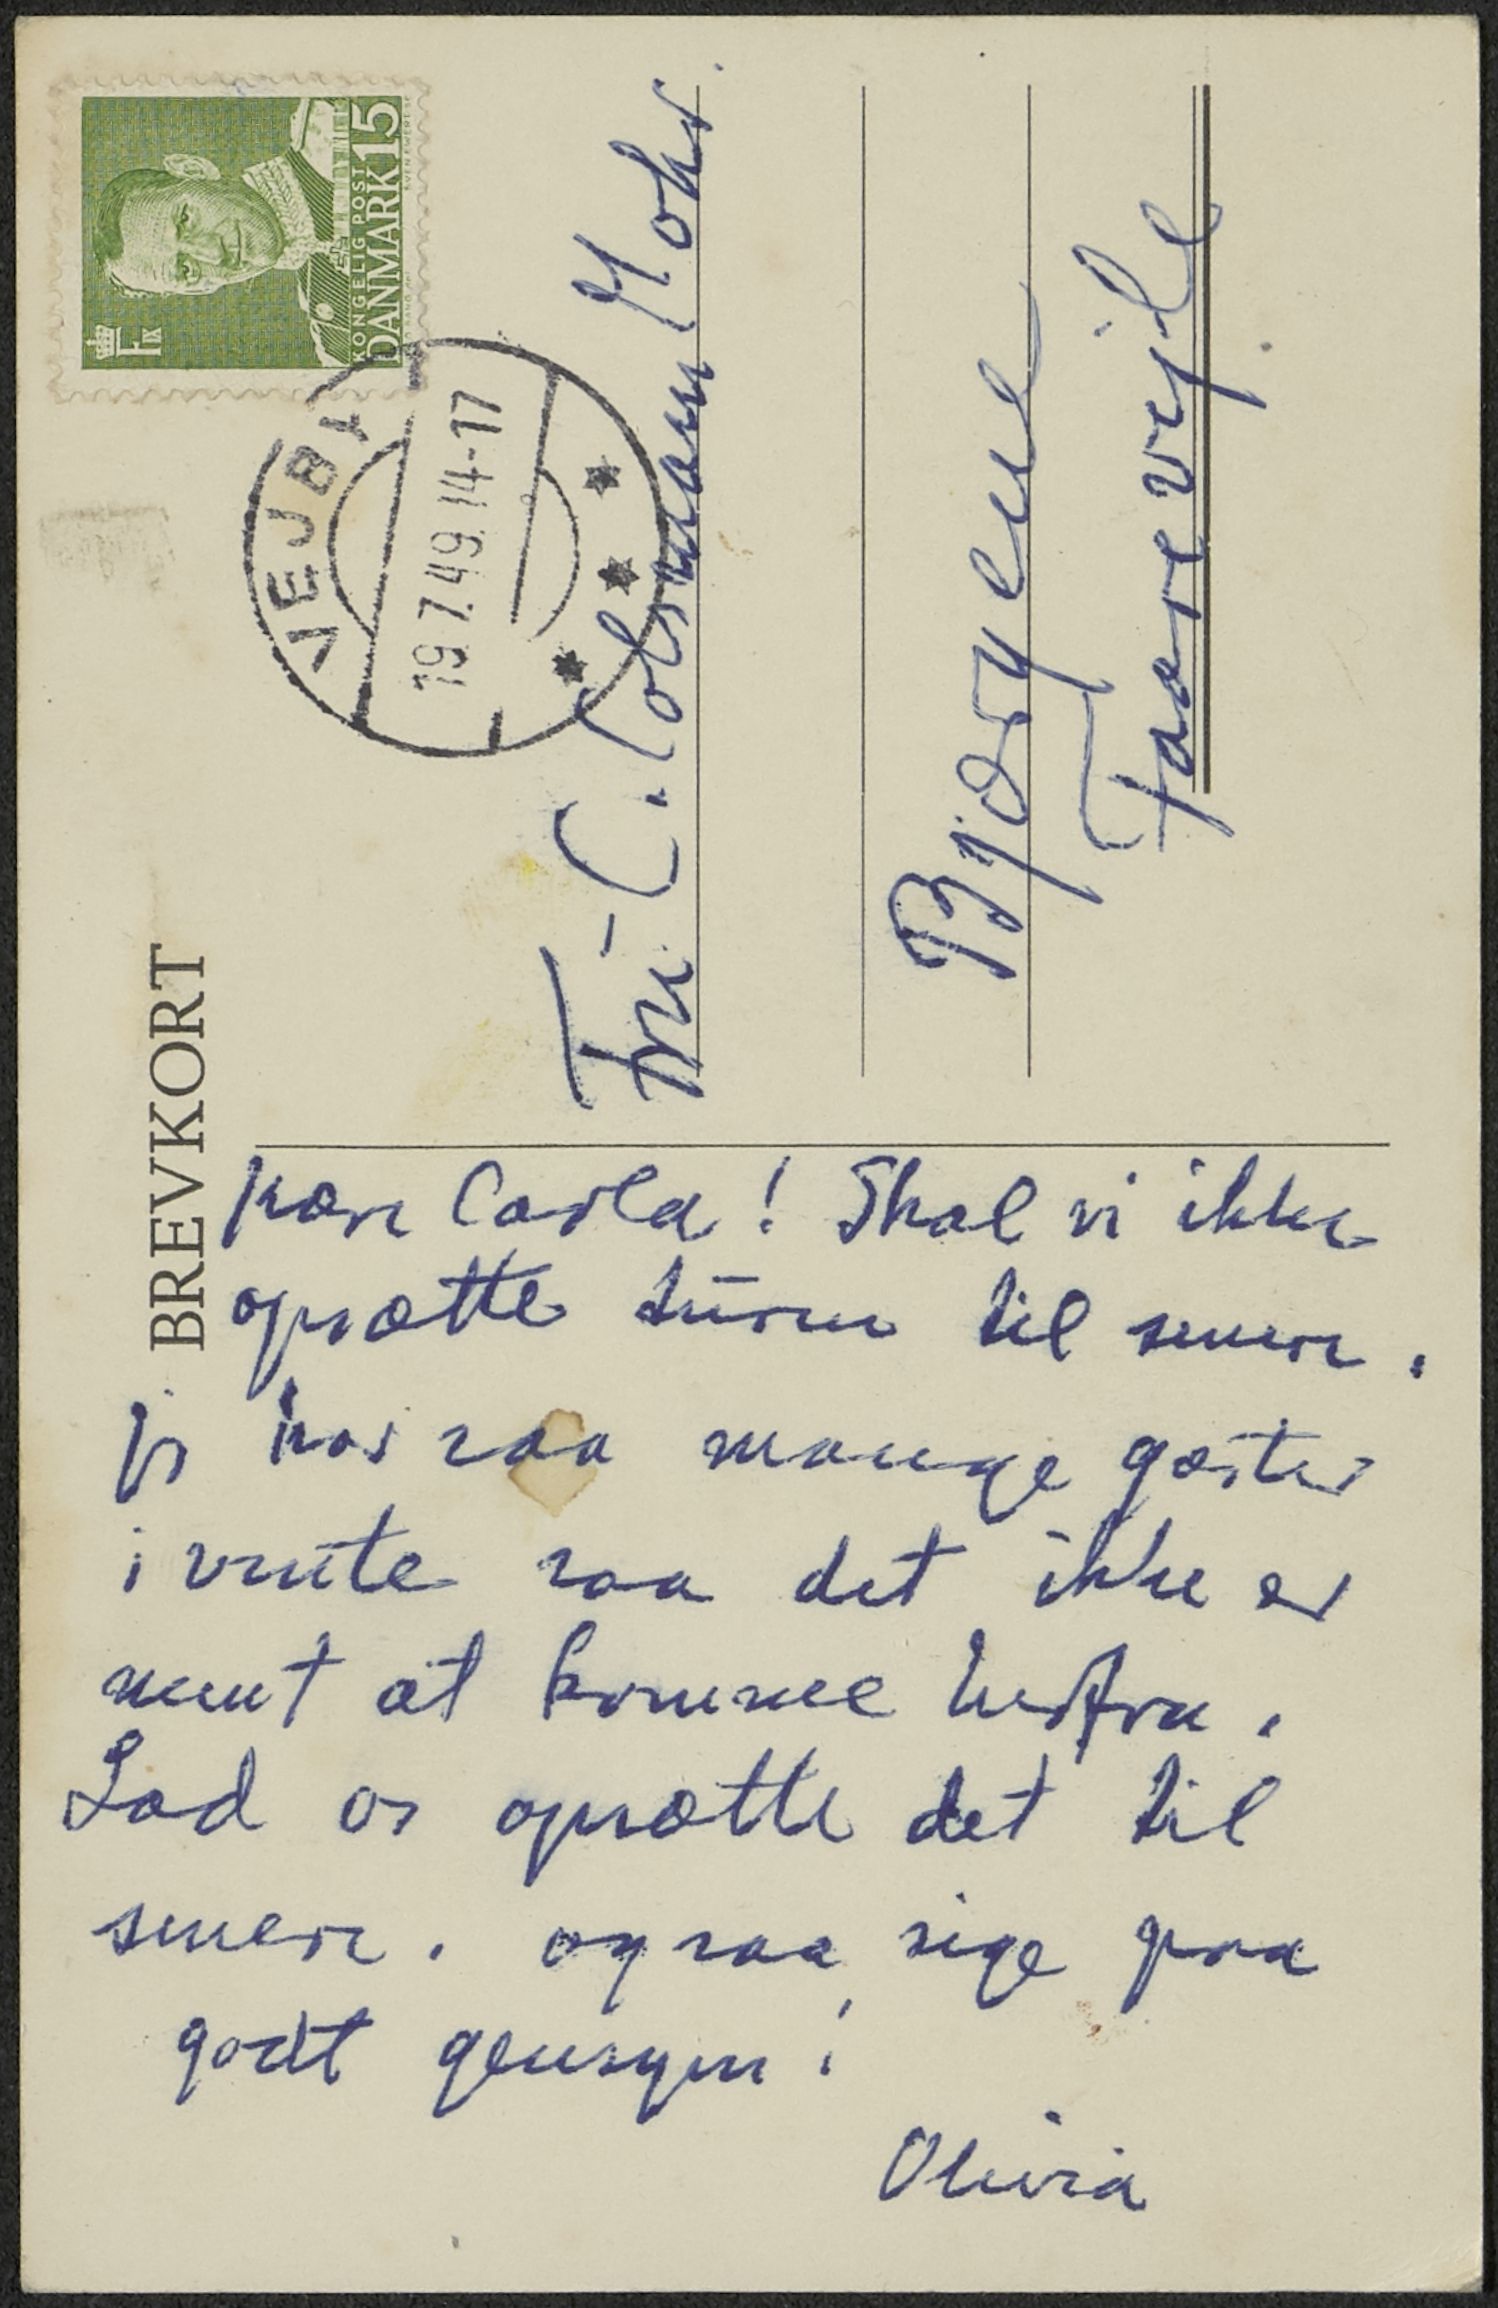 BREVKORT
F IX
KONGELIG POST
DANMARK 15
VEJBY
19.7.49.14-17
Fru C. Colsmann Mohr.
Bjørgene
Faarevejle
Kære Carla! Skal vi ikke
opsætte turen til senere.
jeg har saa mange gæster
i vente saa det ikke er
nemt at komme herfra.
Lad os opsætte det til
senere. og saa sige paa
godt gensyn!
Olivia